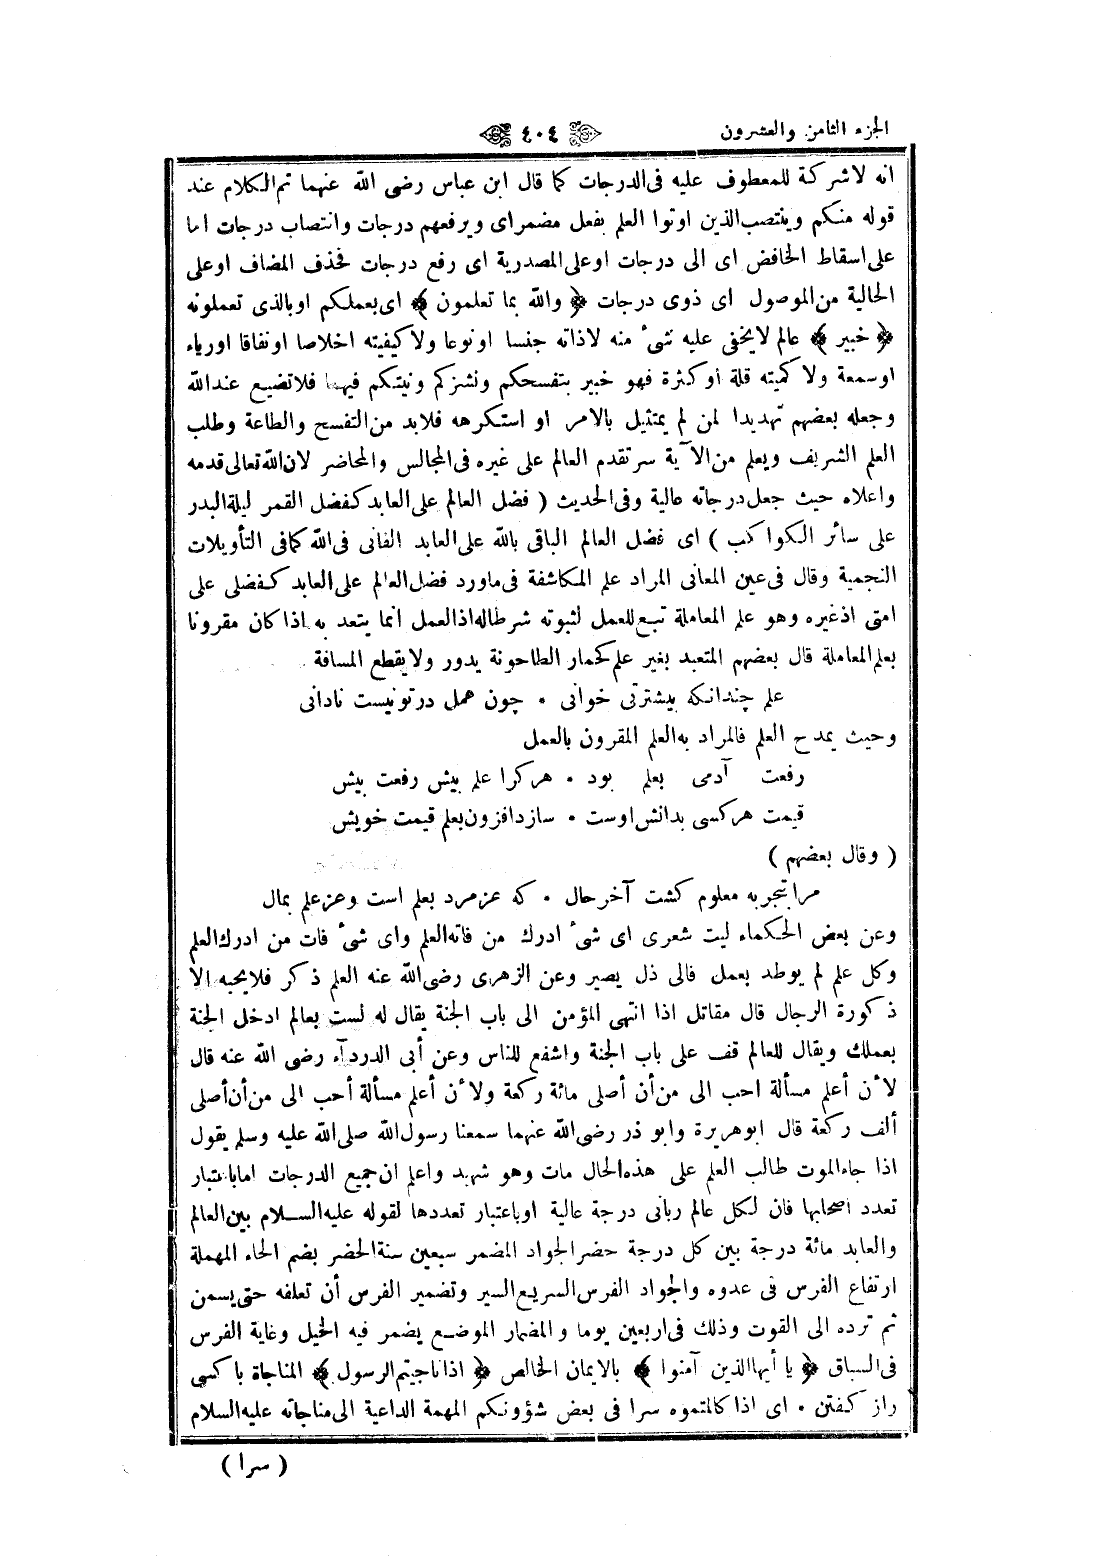 الجزء الثامن والعشرون
٤٠٤
انه لاشركة للمعطوف عليه فى الدرجات كما قال ابن عباس رضى الله عنهما تم الكلام عند
قوله منكم وينتصب الذين اوتوا العلم بفعل مضمر اى ويرفعهم درجات وانتصاب درجات اما
على اسقاط الخافض اى الى درجات اوعلى المصدرية اى رفع درجات فحذف المضاف اوعلى
الحالية من الموصول اى ذوى درجات ﴿ والله بما تعلمون ﴾ اى بعملكم اوبالذى تعملونه
﴿ خبير ﴾ عالم لايخفى عليه شئ منه لاذاته جنسا اونوعا ولاكيفيته اخلاصا اونفاقا اورياء
اوسمعة ولاكميته قلة اوكثرة فهو خبير بتفسحكم ونشزكم ونيتكم فيهما فلاتضيع عندالله
وجعله بعضهم تهديدا لمن لم يمتثيل بالامر او استكرهه فلابد من التفسح والطاعة وطلب
العلم الشريف ويعلم من الآية سر تقدم العالم على غيره فى المجالس والمحاضر لان الله تعالى قدمه
واعلاه حيث جعل درجاته عالية وفى الحديث ( فضل العالم على العابد كفضل القمر ليلة البدر
على سائر الكواكب ) اى فضل العالم الباقى بالله على العابد الفانى فى الله كمافى التأويلات
النجمية وقال فى عين المعانى المراد علم المكاشفة فى ماورد فضل العالم على العابد كفضلى على
امتى اذغيره وهو علم المعاملة تبع للعمل لثبوته شرطاله اذالعمل انما يتعد به اذا كان مقرونا
بعلم المعاملة قال بعضهم المتعبد بغير علم كحمار الطاحونة يدور ولايقطع المسافة
علم چندانكه بيشتر تى خوانى • چون همل در تونيست نادانى
وحيث يمدح العلم فالمراد به العلم المقرون بالعمل
رفعت آدمى بعلم بود • هركرا علم بيش رفعت بيش
قيمت هركسى بدانش اوست • سازد افزون بعلم قيمت خويش
( وقال بعضهم )
مرا بتجربه معلوم كشت آخر حال • كه عز مرد بعلم است وعز علم بمال
وعن بعض الحكماء ليت شعرى اى شئ ادرك من فاته العلم واى شئ فات من ادرك العلم
وكل علم لم يوطد بعمل فالى ذل يصير وعن الزهرى رضى الله عنه العلم ذكر فلايحبه الا
ذكورة الرجال قال مقاتل اذا انتهى المؤمن الى باب الجنة يقال له لست بعالم ادخل الجنة
بعملك ويقال للعالم قف على باب الجنة واشفع للناس وعن أبى الدردآء رضى الله عنه قال
لأن أعلم مسألة احب الى من أن أصلى مائة ركعة ولأن أعلم مسألة أحب الى من أن أصلى
ألف ركعة قال ابوهريرة وابو ذر رضى الله عنهما سمعنا رسول الله صلى الله عليه وسلم يقول
اذا جاء الموت طالب العلم على هذه الحال مات وهو شهيد واعلم ان جميع الدرجات اما باعتبار
تعدد اصحابها فان لكل عالم ربانى درجة عالية اوباعتبار تعددها لقوله عليه السلام بين العالم
والعابد مائة درجة بين كل درجة حضر الجواد المضمر سبعين سنة الحضر بضم الحاء المهملة
ارتفاع الفرس فى عدوه والجواد الفرس السريع السير وتضمير الفرس أن تعلفه حتى يسمن
ثم ترده الى القوت وذلك فى اربعين يوما والمضمار الموضع يضمر فيه الخيل وغاية الفرس
فى السباق ﴿ يا أيها الذين آمنوا ﴾ بالايمان الخالص ﴿ اذا ناجيتم الرسول ﴾ المناجاة با كسى
راز كفتن • اى اذا كالمتموه سرا فى بعض شؤونكم المهمة الداعية الى مناجاته عليه السلام
( سرا )